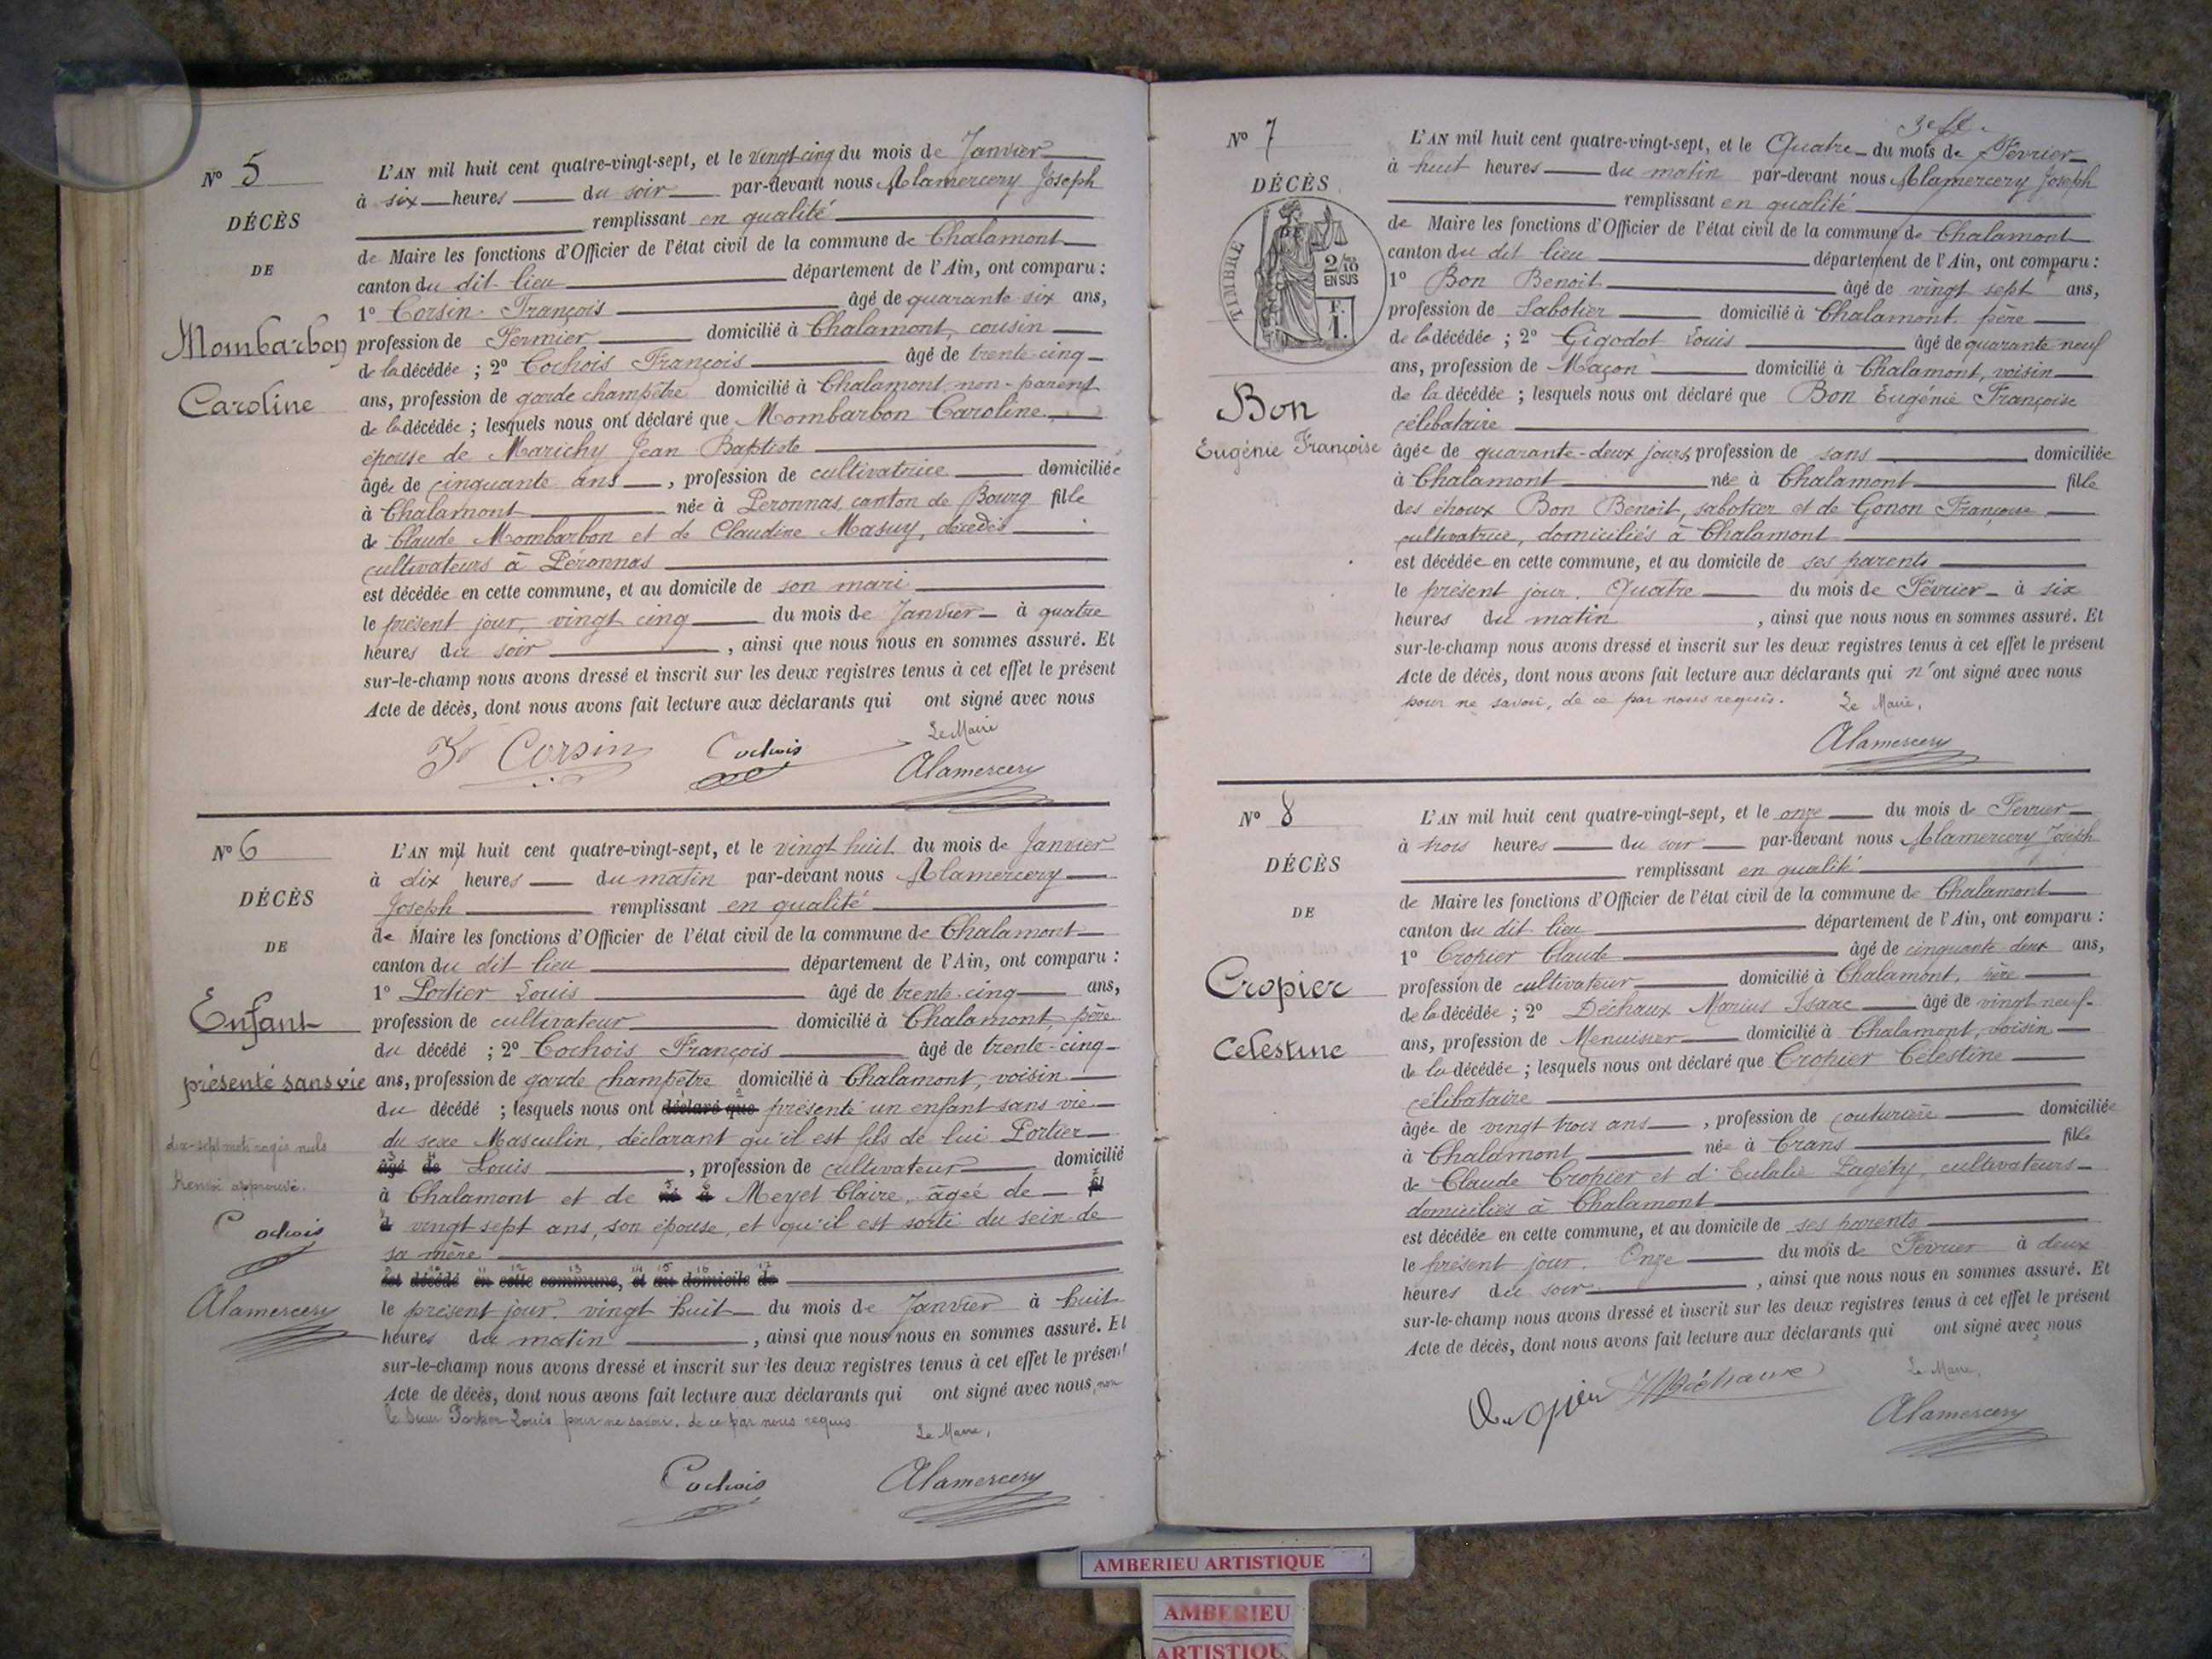 N° 5
DÉCÈS
DE
Mombarbon
Caroline
L'AN mil huit cent quatre-vingt-sept, et le vingt cinq du mois de Janvier
à six heures du soir par-devant nous Alamercery Joseph
remplissant en qualité
de Maire les fonctions d'Officier de l'état civil de la commune de Chalamont
canton du dit lieu département de l'Ain, ont comparu :
1° Corsin François âgé de quarante six ans,
profession de Fermier domicilié à Chalamont, cousin
de la décédée ; 2° Cochois François âgé de trente-cinq
ans, profession de garde champêtre domicilié à Chalamont, non-parent
de la décédée ; lesquels nous ont déclaré que Mombarbon Caroline
épouse de Marichy Jean Baptiste
âgée de cinquante ans, profession de cultivatrice domiciliée
à Chalamont née à Peronnas, canton de Bourg fille
de Claude Mombarbon et de Claudine Masuy, décédés
cultivateurs à Péronnas
est décédée en cette commune, et au domicile de son mari
le présent jour, vingt cinq du mois de Janvier à quatre
heures du soir, ainsi que nous nous en sommes assuré. Et
sur-le-champ nous avons dressé et inscrit sur les deux registres tenus à cet effet le présent
Acte de décès, dont nous avons fait lecture aux déclarants qui ont signé avec nous
Le Maire
Corsin Cochois Alamercery
N° 6
DÉCÈS
DE
Enfant
présenté sans vie
dix-sept mots rayés nuls
Renvoi approuvé.
Cochois
Alamercery
L'AN mil huit cent quatre-vingt-sept, et le vingt huit du mois de Janvier
à dix heures du matin par-devant nous Alamercery
Joseph remplissant en qualité
de Maire les fonctions d'Officier de l'état civil de la commune de Chalamont
canton du dit lieu département de l'Ain, ont comparu :
1° Portier Louis âgé de trente-cinq ans,
profession de cultivateur domicilié à Chalamont, père
du décédé ; 2° Cochois François âgé de trente-cinq
ans, profession de garde champêtre domicilié à Chalamont, voisin
du décédé ; lesquels nous ont déclaré que présenté un enfant sans vie
du sexe Masculin, déclarant qu'il est fils de lui Portier
âgé de Louis, profession de cultivateur domicilié
à Chalamont et de né à Meyet Claire, âgée de fil
d vingt sept ans, son épouse, et qu'il est sorti du sein de
sa mère
est décédé en cette commune, et au domicile de
le présent jour. vingt huit du mois de Janvier à huit
heures du matin, ainsi que nous nous en sommes assuré. Et
sur-le-champ nous avons dressé et inscrit sur les deux registres tenus à cet effet le présent
Acte de décès, dont nous avons fait lecture aux déclarants qui ont signé avec nous, non
le Sieur Portier Louis pour ne savoir, de ce par nous requis
Le Maire,
Cochois Alamercery
N° 7
DÉCÈS
TIMBRE
2/10
EN SUS
F.
1.
Bon
Eugénie Françoise
L'AN mil huit cent quatre-vingt-sept, et le Quatre du mois de Février
à huit heures du matin par-devant nous Alamercery Joseph
remplissant en qualité
de Maire les fonctions d'Officier de l'état civil de la commune de Chalamont
canton du dit lieu département de l'Ain, ont comparu :
1° Bon Benoit âgé de vingt sept ans,
profession de Sabotier domicilié à Chalamont, père
de la décédée ; 2° Gigodot Louis âgé de quarante neuf
ans, profession de Maçon domicilié à Chalamont, voisin
de la décédée ; lesquels nous ont déclaré que Bon Eugénie Françoise
célibataire
âgée de quarante-deux jours, profession de sans domiciliée
à Chalamont née à Chalamont fille
des époux Bon Benoit, sabotier et de Gonon Françoise
cultivatrice, domiciliés à Chalamont
est décédée en cette commune, et au domicile de ses parents
le présent jour. Quatre du mois de Février à six
heures du matin, ainsi que nous nous en sommes assuré. Et
sur-le-champ nous avons dressé et inscrit sur les deux registres tenus à cet effet le présent
Acte de décès, dont nous avons fait lecture aux déclarants qui n'ont signé avec nous
pour ne savoir, de ce par nous requis.
Le Maire,
Alamercery
N° 8
DÉCÈS
DE
Cropier
Celestine
L'AN mil huit cent quatre-vingt-sept, et le onze du mois de Fevrier
à trois heures du soir par-devant nous Alamercery Joseph
remplissant en qualité
de Maire les fonctions d'Officier de l'état civil de la commune de Chalamont
canton du dit lieu département de l'Ain, ont comparu :
1° Cropier Claude âgé de cinquante-deux ans,
profession de cultivateur domicilié à Chalamont, père
de la décédée ; 2° Déchaux Marius Isaac âgé de vingt neuf
ans, profession de Menuisier domicilié à Chalamont, voisin
de la décédée ; lesquels nous ont déclaré que Cropier Célestine
célibataire
âgée de vingt trois ans, profession de couturière domiciliée
à Chalamont née à Crans fille
de Claude Cropier et d'Eulalie Pagéty, cultivateurs
domiciliés à Chalamont
est décédée en cette commune, et au domicile de ses parents
le présent jour. Onze du mois de Fevrier à deux
heures du soir, ainsi que nous nous en sommes assuré. Et
sur-le-champ nous avons dressé et inscrit sur les deux registres tenus à cet effet le présent
Acte de décès, dont nous avons fait lecture aux déclarants qui ont signé avec nous
Le Maire,
Alamercery
AMBERIEU ARTISTIQUE
AMBERIEU
ARTISTIQU